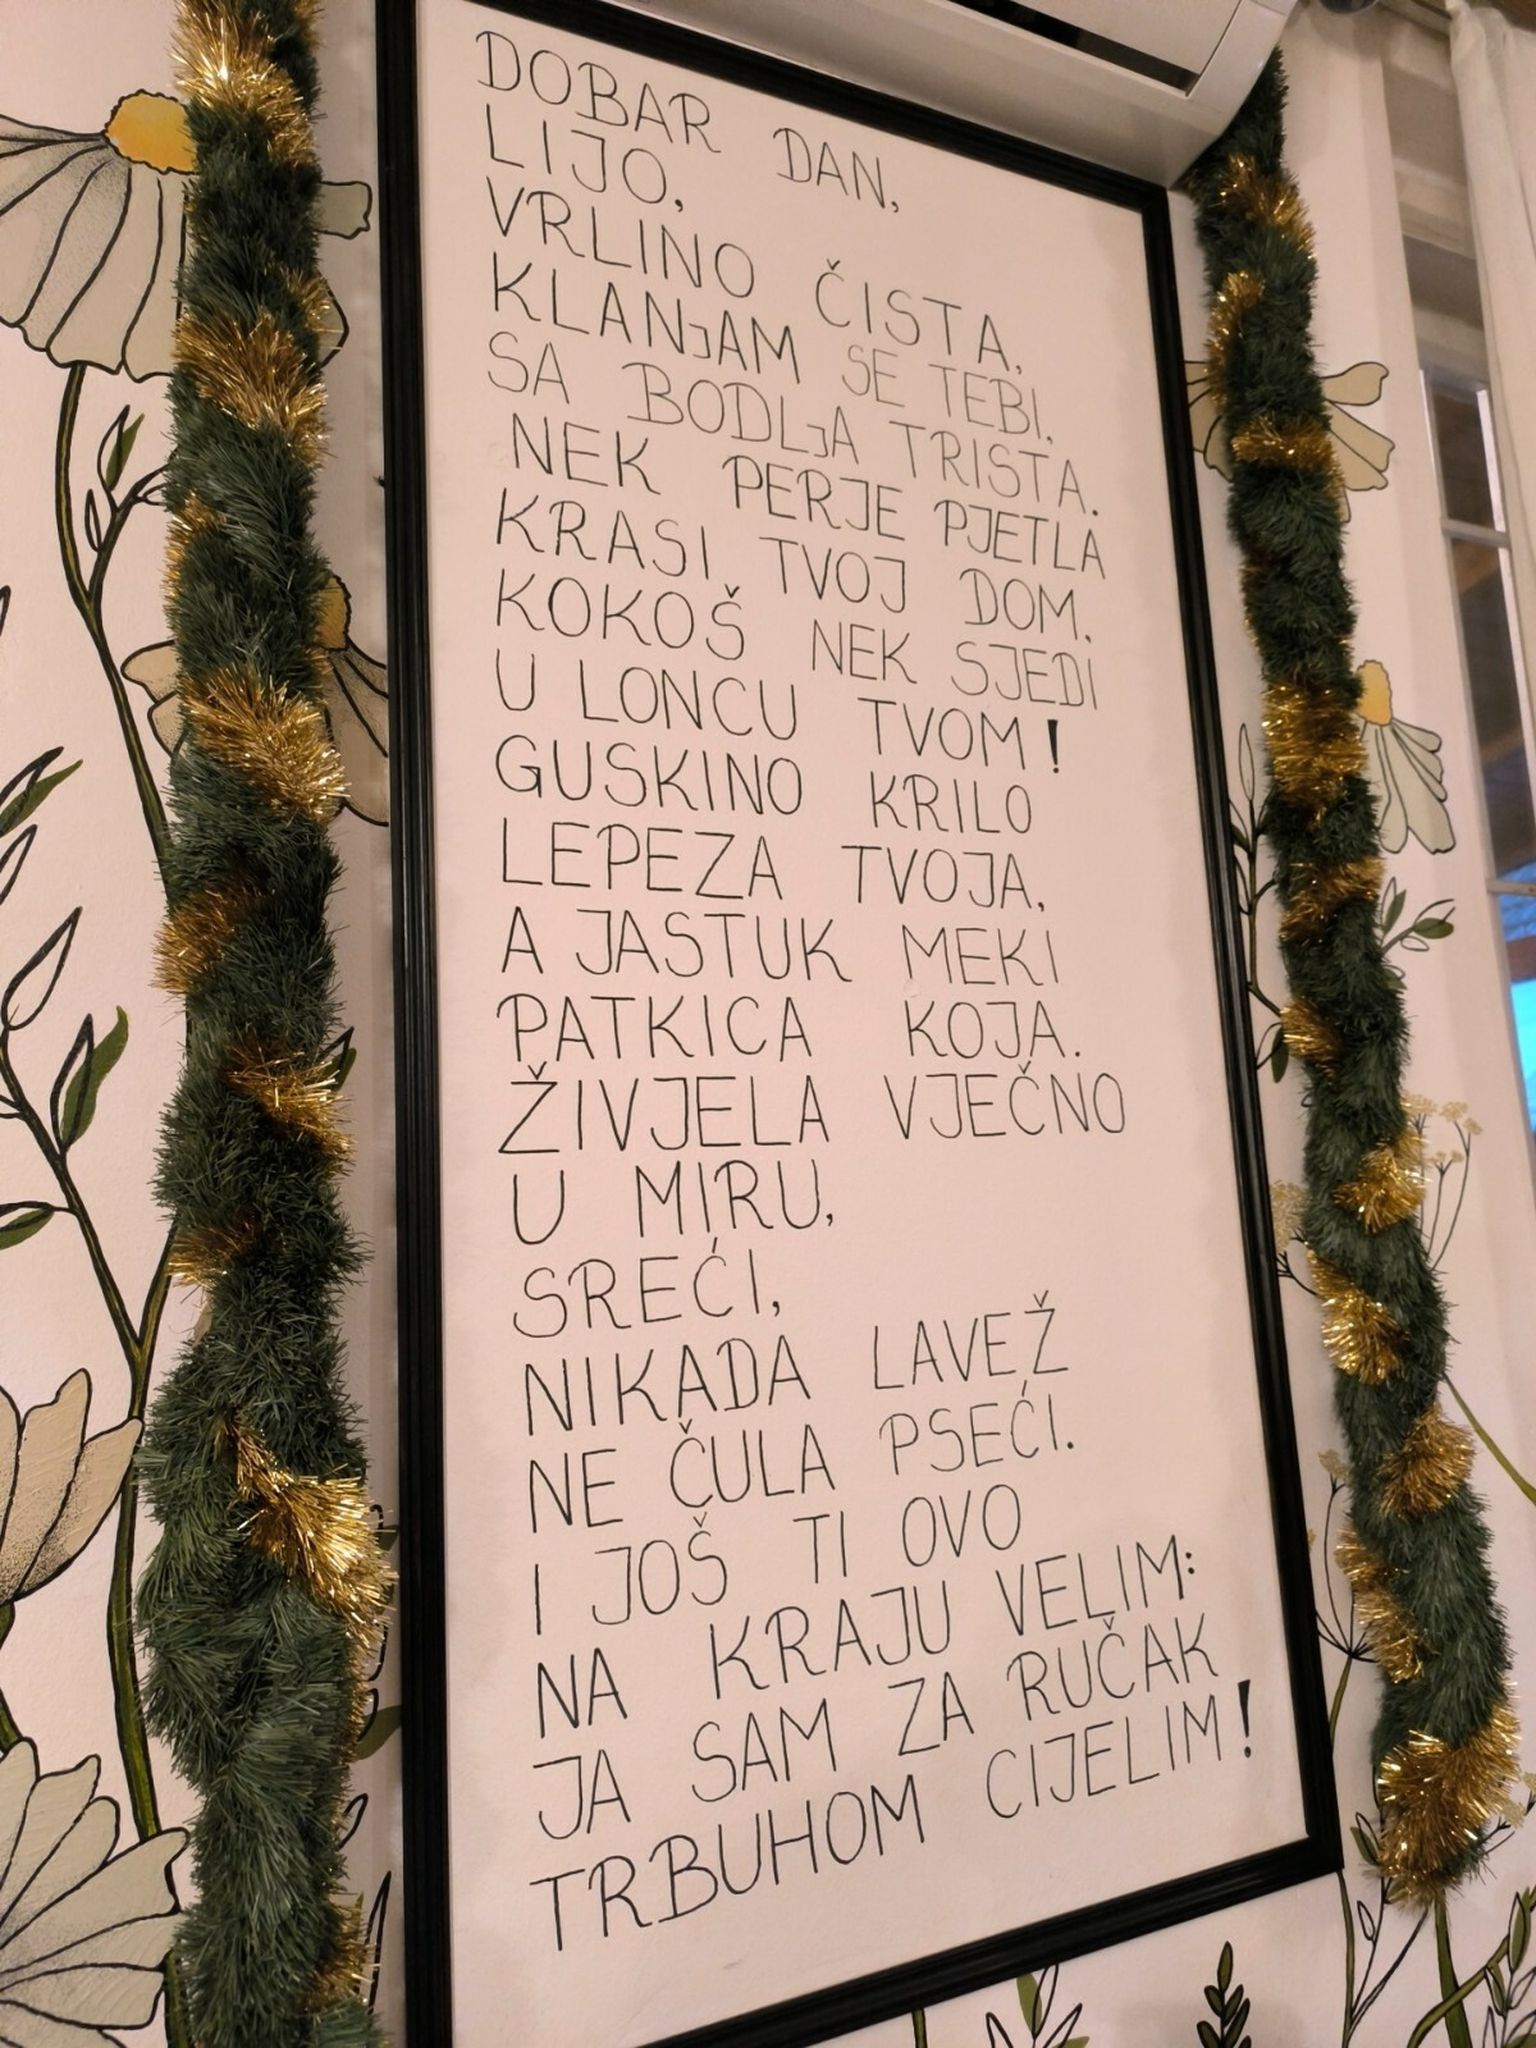 DOBAR DAN,
LIJO,
VRLINO ČISTA,
KLANJAM SE TEBI.
SA BODLJA TRISTA.
NEK PERJE PJETLA
KRASI TVOJ DOM.
KOKOŠ NEK SJEDI
U LONCU TVOM!
GUSKINO KRILO
LEPEZA TVOJA,
A JASTUK MEKI
PATKICA KOJA.
ŽIVJELA VJEČNO
U MIRU,
SREĆI,
NIKADA LAVEŽ
NE ČULA PSEĆI.
I JOŠ TI OVO
NA KRAJU VELIM:
JA SAM ZA RUČAK
TRBUHOM CIJELIM!